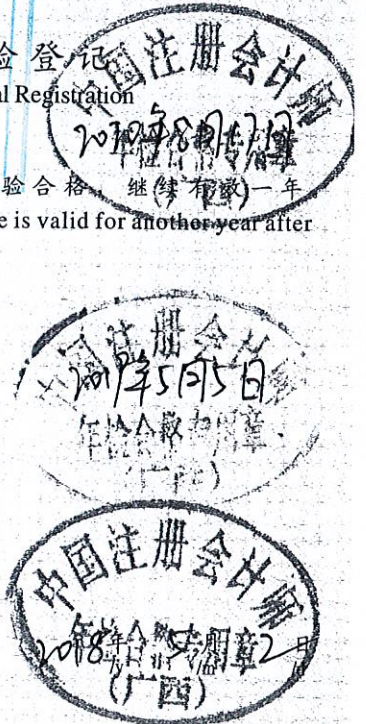 验登记
al Registration
中国注册会计师
2020年8月17日
年检合格专用章
(广西)
验合格,继续有效一年
e is valid for another year after
中国注册会计师
2019年5月5日
年检合格专用章
(广西)
中国注册会计师
年检合格专用章
2018年5月2日
(广西)